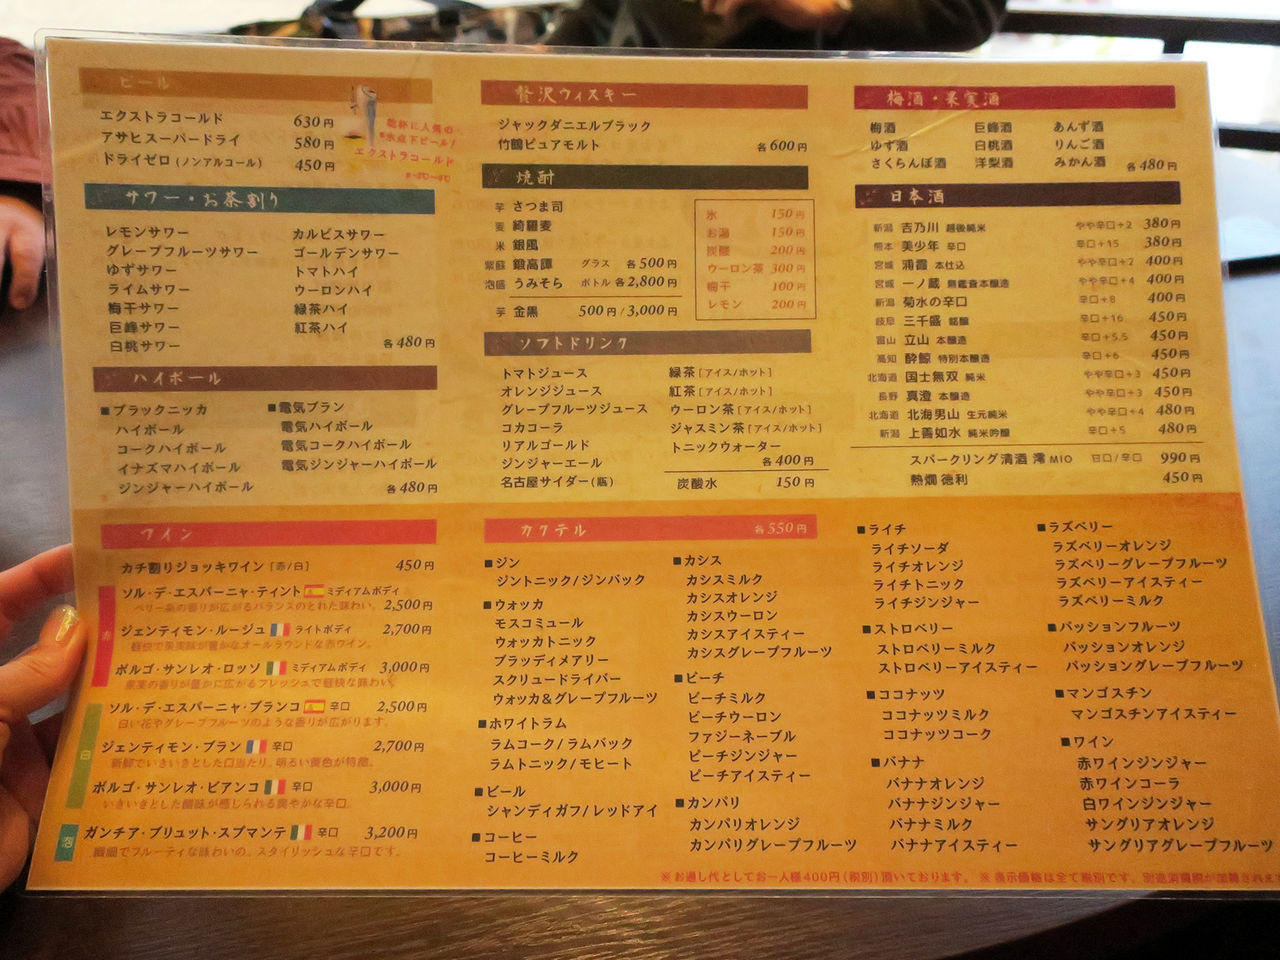 ビール
エクストラコールド 630円
アサヒスーパードライ 580円
ドライゼロ(ノンアルコール) 450円
乾杯に人気の
氷点下ビール!
エクストラコールド
サワー・お茶割り
レモンサワー
グレープフルーツサワー
ゆずサワー
ライムサワー
梅干サワー
巨峰サワー
白桃サワー
カルピスサワー
ゴールデンサワー
トマトハイ
ウーロンハイ
緑茶ハイ
紅茶ハイ
各480円
ハイボール
■ブラックニッカ
ハイボール
コークハイボール
イナズマハイボール
ジンジャーハイボール
■電気ブラン
電気ハイボール
電気コークハイボール
電気ジンジャーハイボール
各480円
贅沢ウィスキー
ジャックダニエルブラック
竹鶴ピュアモルト 各600円
焼酎
芋 さつま司
麦 綺羅麦
米 銀風
紫蘇 鍛高譚 グラス 各500円
泡盛 うみそら ボトル 各2,800円
芋 金黒 500円/3,000円
氷 150円
お湯 150円
炭酸 200円
ウーロン茶 300円
梅干 100円
レモン 200円
ソフトドリンク
トマトジュース
オレンジジュース
グレープフルーツジュース
コカコーラ
リアルゴールド
ジンジャーエール
名古屋サイダー(瓶)
緑茶[アイス/ホット]
紅茶[アイス/ホット]
ウーロン茶[アイス/ホット]
ジャスミン茶[アイス/ホット]
トニックウォーター
各400円
炭酸水 150円
梅酒・果実酒
梅酒 巨峰酒 あんず酒
ゆず酒 白桃酒 りんご酒
さくらんぼ酒 洋梨酒 みかん酒 各480円
日本酒
新潟 吉乃川 越後純米 やや辛口+2 380円
熊本 美少年 辛口 辛口+15 380円
宮城 浦霞 本仕込 やや辛口+2 400円
宮城 一ノ蔵 無鑑査本醸造 やや辛口+4 400円
新潟 菊水の辛口 辛口+8 400円
岐阜 三千盛 銘醸 辛口+16 450円
富山 立山 本醸造 辛口+5.5 450円
高知 酔鯨 特別本醸造 辛口+6 450円
北海道 国士無双 純米 やや辛口+3 450円
長野 真澄 本醸造 やや辛口+3 450円
北海道 北海男山 生元純米 やや辛口+4 480円
新潟 上善如水 純米吟醸 辛口+5 480円
スパークリング清酒 澪 MIO 甘口/辛口 990円
熱燗 徳利 450円
ワイン
カチ割りジョッキワイン[赤/白] 450円
赤
ソル・デ・エスパーニャ・ティント ミディアムボディ
ベリー系の香りが広がるバランスのとれた味わい。 2,500円
ジェンティモン・ルージュ ライトボディ 2,700円
軽快で果実味が豊かなオールラウンドな赤ワイン。
ボルゴ・サンレオ・ロッソ ミディアムボディ 3,000円
果実の香りが豊かに広がるフレッシュで軽快な味わい。
白
ソル・デ・エスパーニャ・ブランコ 辛口 2,500円
白い花やグレープフルーツのような香りが広がります。
ジェンティモン・ブラン 辛口 2,700円
新鮮でいきいきとした口当たり。明るい黄色が特徴。
ボルゴ・サンレオ・ビアンコ 辛口 3,000円
いきいきとした酸味が感じられる爽やかな辛口。
泡
ガンチア・ブリュット・スプマンテ 辛口 3,200円
繊細でフルーティな味わいの、スタイリッシュな辛口です。
カクテル 各550円
■ジン
ジントニック/ジンバック
■ウォッカ
モスコミュール
ウォッカトニック
ブラッディメアリー
スクリュードライバー
ウォッカ&グレープフルーツ
■ホワイトラム
ラムコーク/ラムバック
ラムトニック/モヒート
■ビール
シャンディガフ/レッドアイ
■コーヒー
コーヒーミルク
■カシス
カシスミルク
カシスオレンジ
カシスウーロン
カシスアイスティー
カシスグレープフルーツ
■ピーチ
ピーチミルク
ピーチウーロン
ファジーネーブル
ピーチジンジャー
ピーチアイスティー
■カンパリ
カンパリオレンジ
カンパリグレープフルーツ
■ライチ
ライチソーダ
ライチオレンジ
ライチトニック
ライチジンジャー
■ストロベリー
ストロベリーミルク
ストロベリーアイスティー
■ココナッツ
ココナッツミルク
ココナッツコーク
■バナナ
バナナオレンジ
バナナジンジャー
バナナミルク
バナナアイスティー
■ラズベリー
ラズベリーオレンジ
ラズベリーグレープフルーツ
ラズベリーアイスティー
ラズベリーミルク
■パッションフルーツ
パッションオレンジ
パッショングレープフルーツ
■マンゴスチン
マンゴスチンアイスティー
■ワイン
赤ワインジンジャー
赤ワインコーラ
白ワインジンジャー
サングリアオレンジ
サングリアグレープフルーツ
※お通し代としてお一人様400円(税別)頂いております。 ※表示価格は全て税別です。別途消費税が加算されます